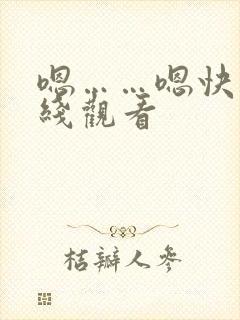 嗯……嗯快
綫觀看
桔瓣人參